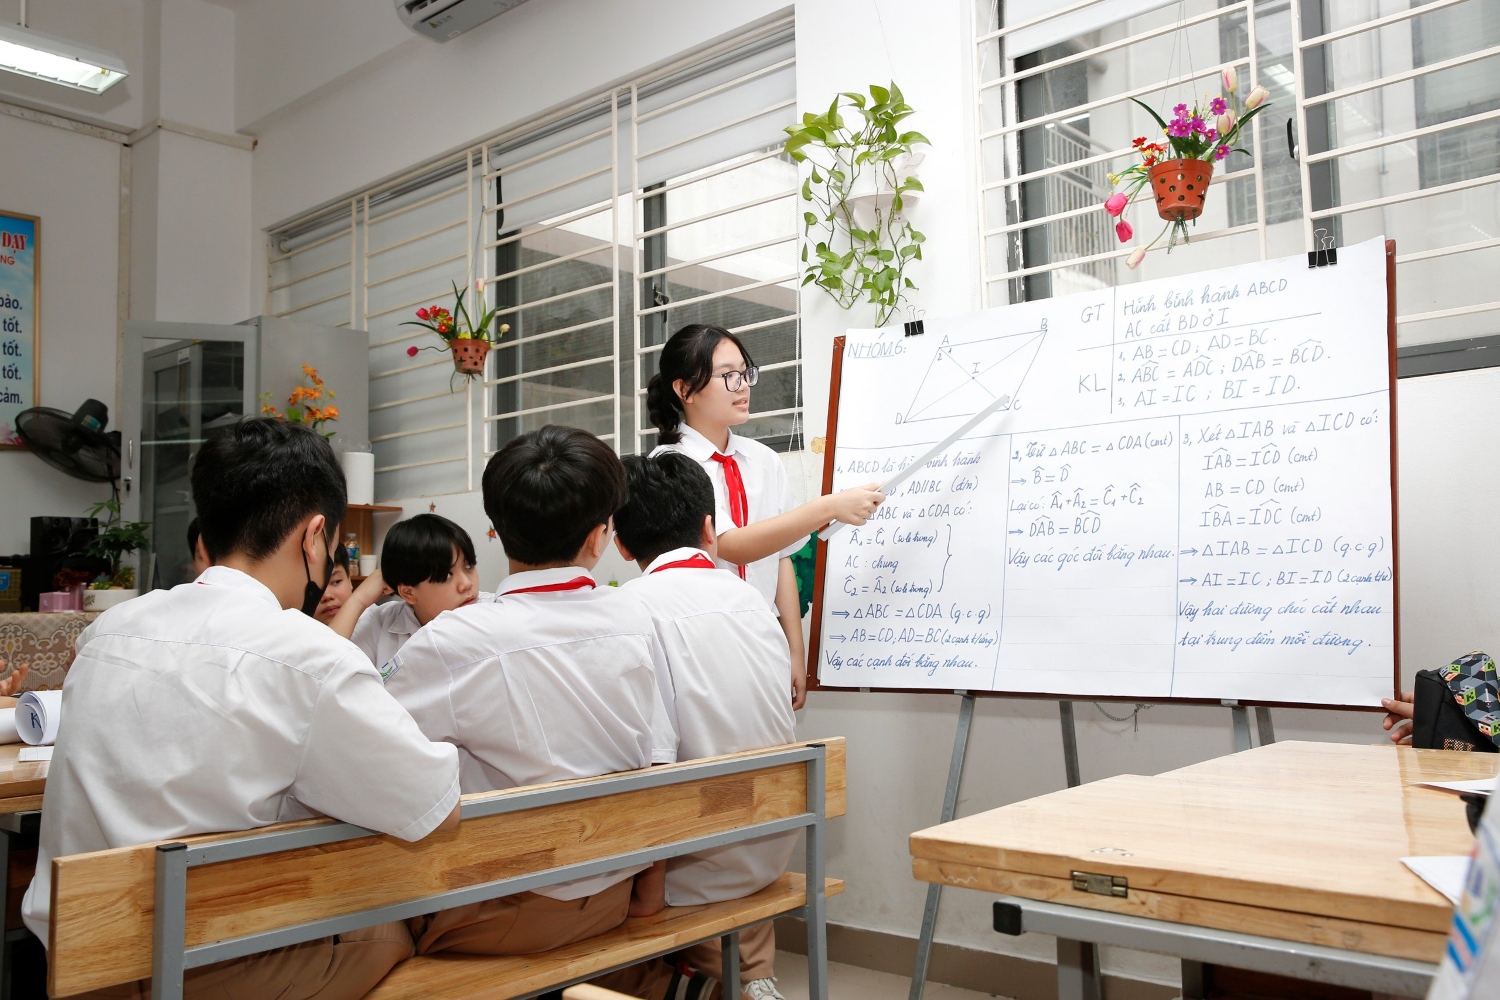 DẠY
NG
bảo.
tốt.
tốt.
tốt.
cảm.
NHÓM 6:
A
B
I
D
C
GT
Hình bình hành ABCD
AC cắt BD ở I
KL
1, AB = CD ; AD = BC.
2, ABC = ADC ; DAB = BCD.
3, AI = IC ; BI = ID.
1, ABCD là bình hành
, AD//BC (đ/n)
ABC và △CDA có:
Â₁ = Ĉ₁ (so le trong)
AC : chung
Ĉ₂ = Â₂ (so le trong)
⇒ △ABC = △CDA (g.c.g)
⇒ AB=CD; AD=BC (2 cạnh t/ứng)
Vậy các cạnh đối bằng nhau.
2, Từ △ABC = △CDA (cmt)
⇒ B̂ = D̂
Lại có: Â₁+Â₂ = Ĉ₁+Ĉ₂
⇒ DAB = BCD
Vậy các góc đối bằng nhau.
3, Xét △IAB và △ICD có:
IAB = ICD (cmt)
AB = CD (cmt)
IBA = IDC (cmt)
⇒ △IAB = △ICD (g.c.g)
⇒ AI = IC ; BI = ID (2 cạnh t/ư)
Vậy hai đường chéo cắt nhau
tại trung điểm mỗi đường.